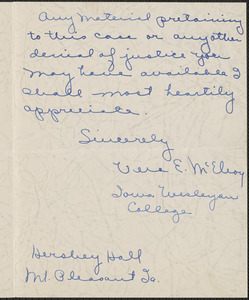 Any material pretaining
to this case or any other
denial of justice you
may have available I
shall most heartily
appreciate.
Sincerely
Vera E. McElroy
Iowa Wesleyan
College
Hershey Hall
Mt. Pleasant Ia.